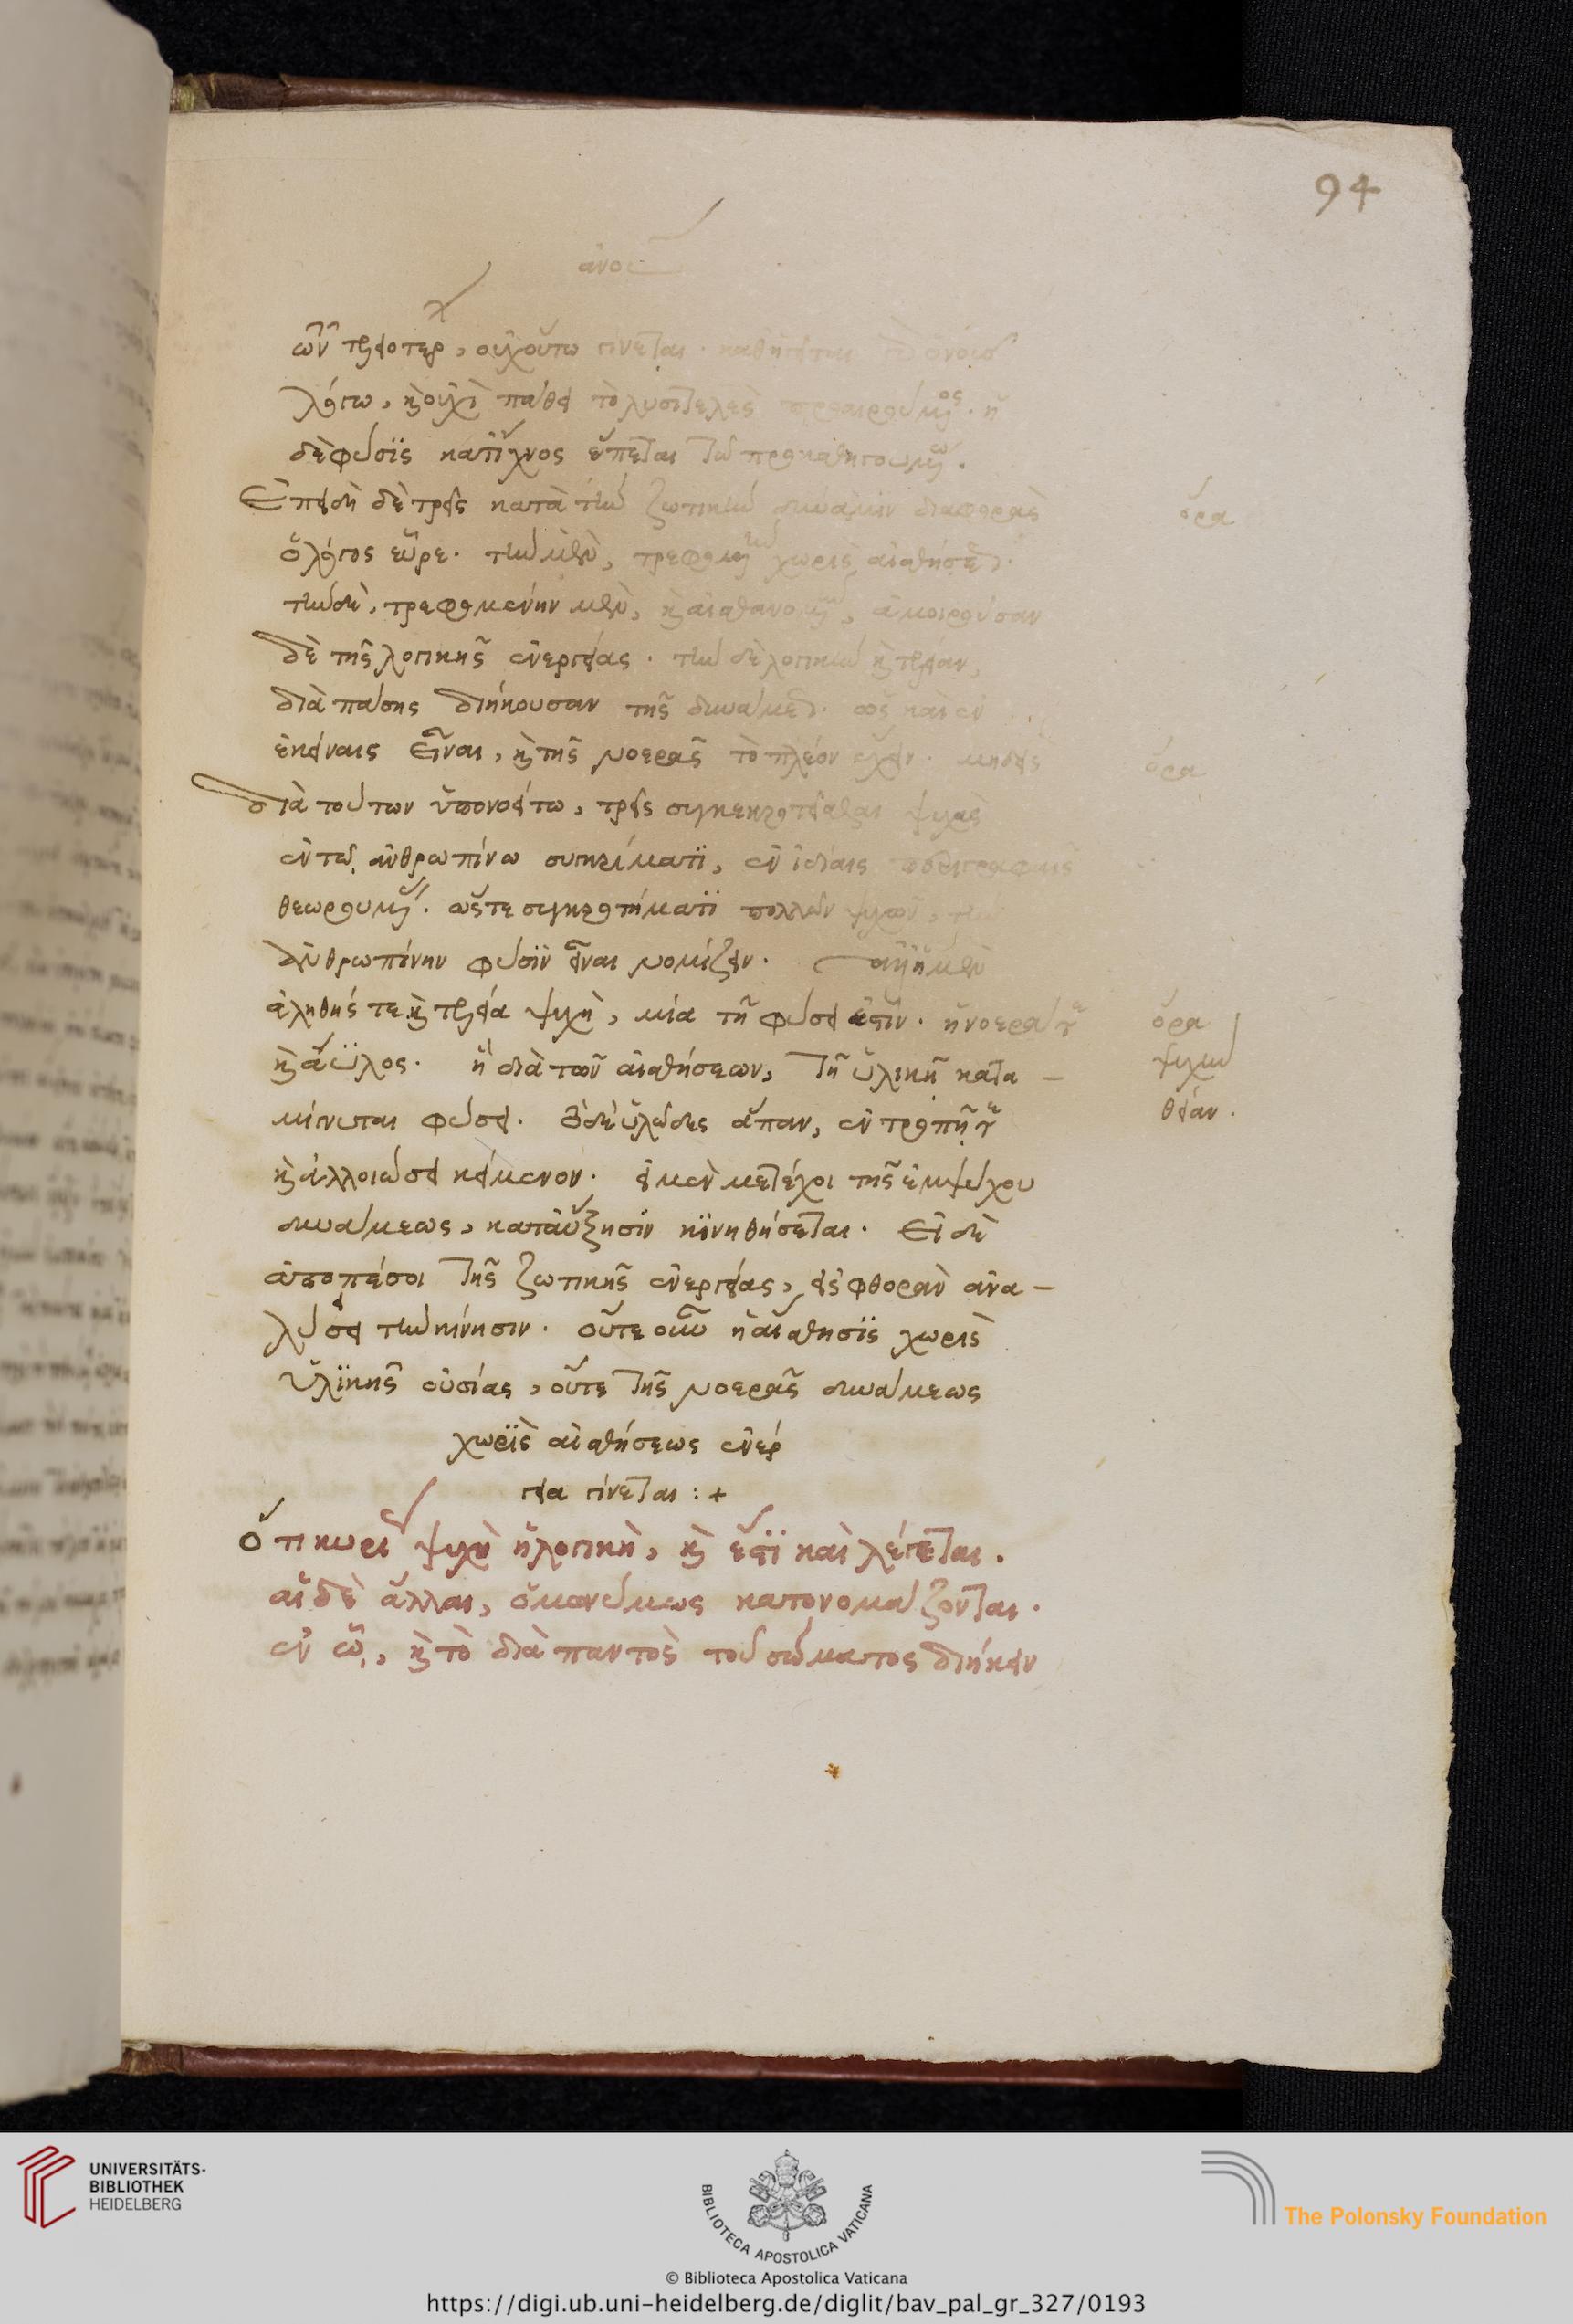 94
ὧν τελειότερον, οὐχ οὕτω γίνεται. καθηγεῖται
λόγω, καὶ οὐχὶ πάθει τὸ λυσιτελὲς προαιρούμενος. ἡ
δὲ φύσϊς κατ' ἴχνος ἕπεται τῶ προκαθηγουμένω.
Ἐπειδὴ δὲ τρεῖς κατὰ τὴν ζωτικὴν δύναμιν διαφορὰς
ὁ λόγος εὗρε. τὴν μὲν, τρεφομένην χωρὶς αἰσθήσεως.
τὴν δὲ, τρεφομένην μὲν, καὶ αἰσθανομένην, ἀμοιροῦσαν
δὲ τῆς λογικῆς ἐνεργείας. τὴν δὲ λογικὴν καὶ τελείαν,
διὰ πάσης διήκουσαν τῆς δυνάμεως. ὡς καὶ ἐν
ἐκείναις εἶναι, καὶ τῆς νοερᾶς τὸ πλέον ἔχειν. μηδεὶς
διὰ τούτων ὑπονοείτω, τρεῖς συγκεκροτεῖσθαι ψυχὰς
ἐν τῶ ἀνθρωπίνω συγκρίματϊ, ἐν ἰδίαις περιγραφαῖς
θεωρουμένας. ὥστε συγκροτήματϊ πολλῶν ψυχῶν, τὴν
ἀνθρωπίνην φύσϊν εἶναι νομίζειν. ἀλλ' ἡ μὲν
ἀληθής τε καὶ τελεία ψυχὴ, μία τῆ φύσει ἐστϊν. ἡ νοερά τε
καὶ ἄϋλος. ἡ διὰ τῶν αἰσθήσεων, τῆ ὑλικῆ κατα-
μίγνυται φύσει. τὸ δὲ ὑλῶδες ἅπαν, ἐν τροπῆ τε
καὶ ἀλλοιώσει κείμενον. εἰ μὲν μετέχοι τῆς ἐμψύχου
δυνάμεως, κατ' αὔξησϊν κϊνηθήσεται. Εἰ δὲ
ἀποπέσοι τῆς ζωτικῆς ἐνεργείας, εἰς φθορὰν ἀνα-
λύσει τὴν κίνησιν. οὔτε οὖν ἡ αἴσθησϊς χωρὶς
ὑλϊκῆς οὐσίας, οὔτε τῆς νοερᾶς δυνάμεως
χωρϊς αἰσθήσεως ἐνέρ
γεια γίνεται : +
Ὅτι κυρίως ψυχὴ ἡ λογικὴ, καὶ ἔστϊ καὶ λέγεται.
αἱ δὲ ἄλλαι, ὁμωνύμως κατονομάζονται.
ἐν ὧ, καὶ τὸ διὰ παντὸς τοῦ σώματος διήκειν
ὅρα
ὅρα
ὅρα
ψυχὴν
θείαν.
UNIVERSITÄTS-
BIBLIOTHEK
HEIDELBERG
BIBLIOTECA APOSTOLICA VATICANA
The Polonsky Foundation
© Biblioteca Apostolica Vaticana
https://digi.ub.uni-heidelberg.de/diglit/bav_pal_gr_327/0193